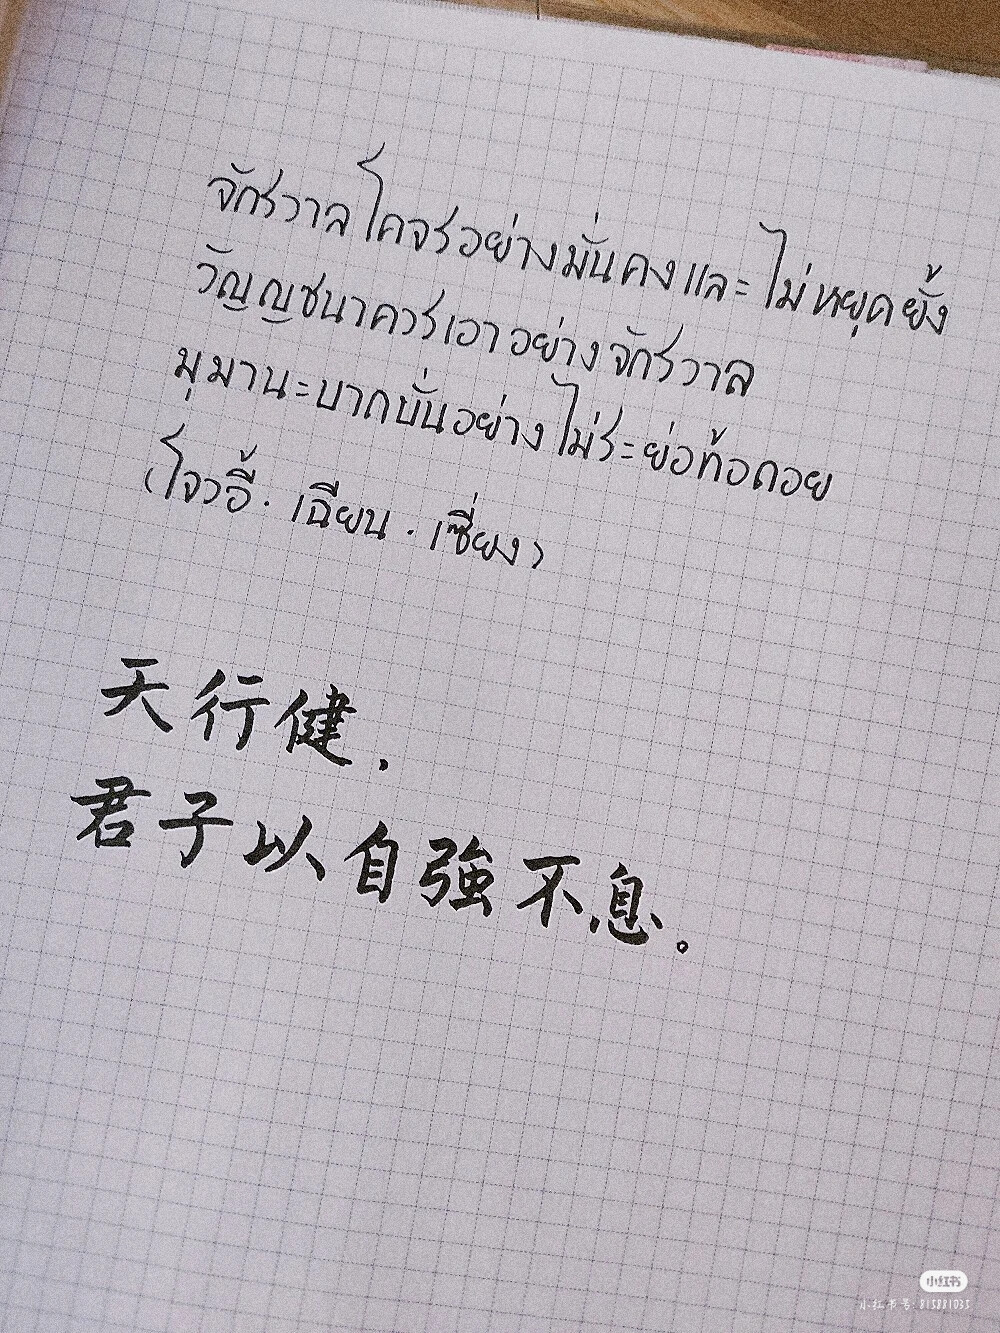 จักรวาลโคจรอย่างมั่นคงและไม่หยุดยั้ง
วัญญูชนาควรเอาอย่างจักรวาล
มุมานะบากบั่นอย่างไม่ระย่อท้อถอย
(โจวอี้·เฉียน·เซี่ยง)
天行健，
君子以自強不息。
小红书
小红书号:815881035